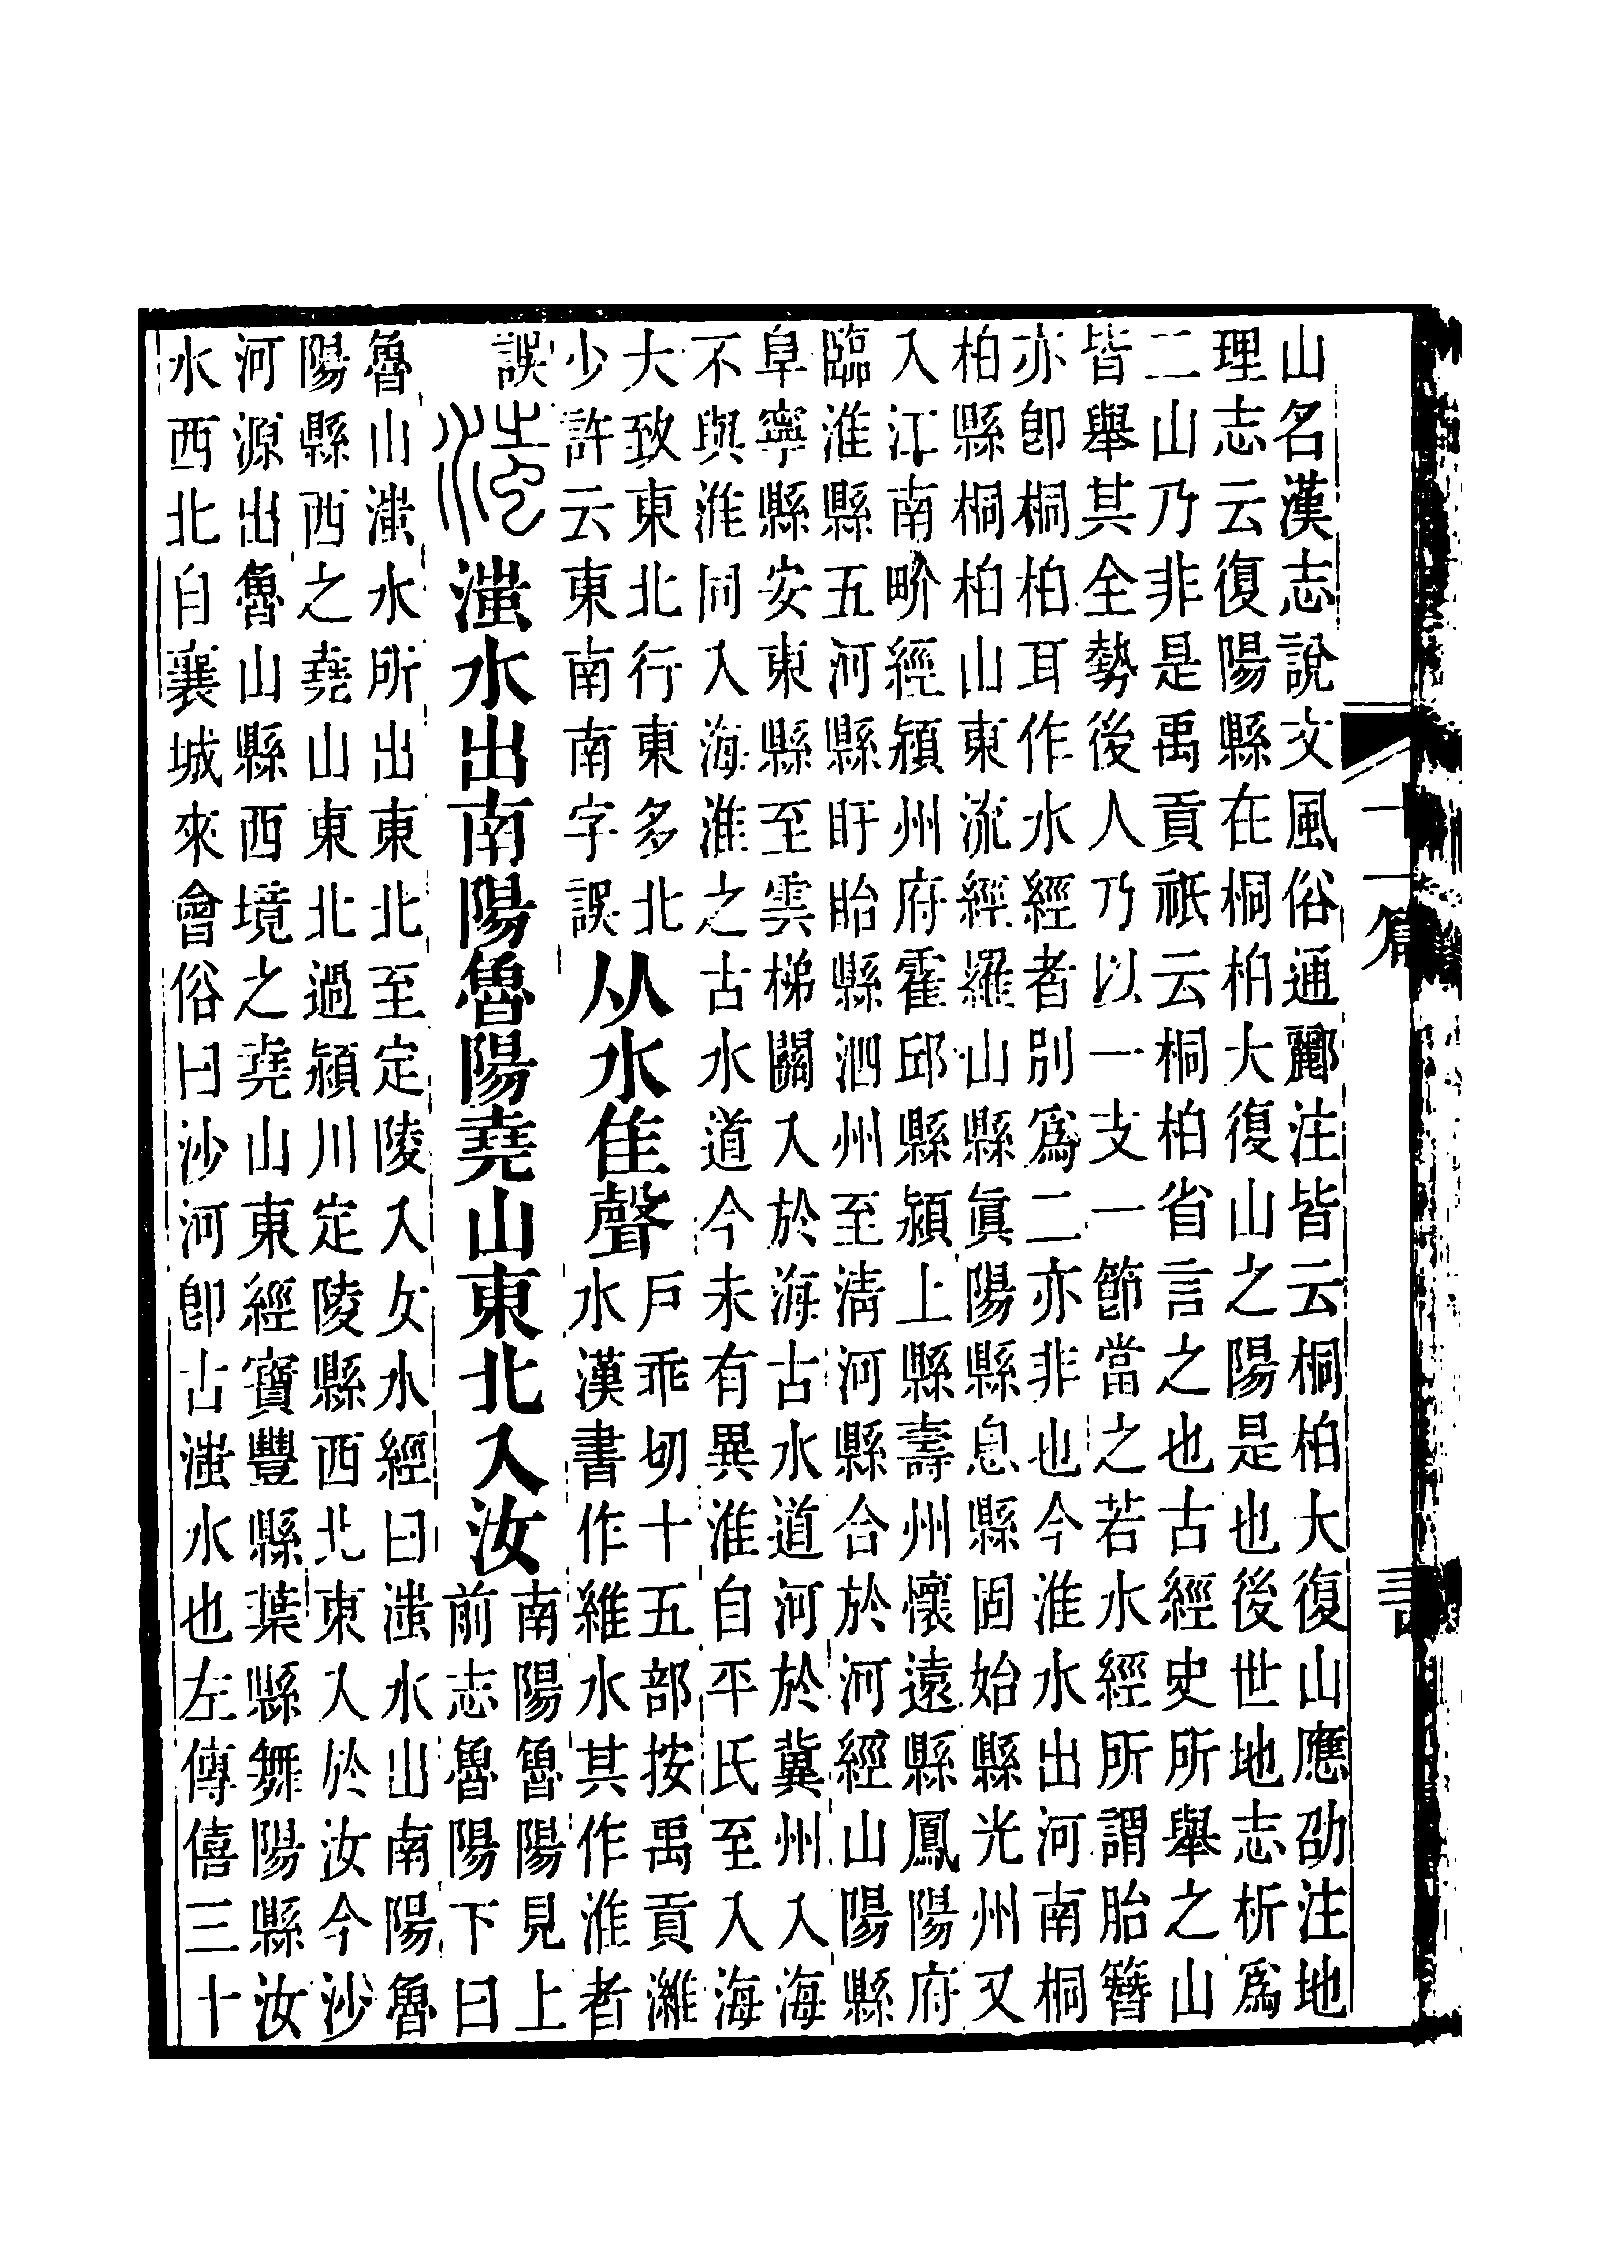 山名漢志說文風俗通酈注皆云桐柏大復山應劭注地
理志云復陽縣在桐柏大復山之陽是也後世地志析爲
二山乃非是禹貢祇云桐柏省言之也古經史所舉之山
皆舉其全勢後人乃以一支一節當之若水經所謂胎簪
亦卽桐柏耳作水經者別爲二亦非也今淮水出河南桐
柏縣桐柏山東流經羅山縣眞陽縣息縣固始縣光州又
入江南畍經潁州府霍邱縣潁上縣壽州懷遠縣鳳陽府
臨淮縣五河縣盱眙縣泗州至淸河縣合於河經山陽縣
阜寧縣安東縣至雲梯關入於海古水道河於冀州入海
不與淮同入海淮之古水道今未有異淮自平氏至入海
大致東北行東多北
少許云東南南字誤
从水隹聲
戶乖切十五部按禹貢濰
水漢書作維水其作淮者
誤
滍
滍水出南陽魯陽堯山東北入汝
南陽魯陽見上
前志魯陽下曰
魯山滍水所出東北至定陵入女水經曰滍水山南陽魯
陽縣西之堯山東北過潁川定陵縣西北東入於汝今沙
河源出魯山縣西境之堯山東經寶豐縣葉縣舞陽縣汝
水西北自襄城來會俗曰沙河卽古滍水也左傳僖三十